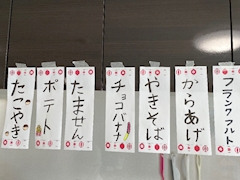 フランクフルト
からあげ
やきそば
チョコバナナ
たません
ポテト
たこやき